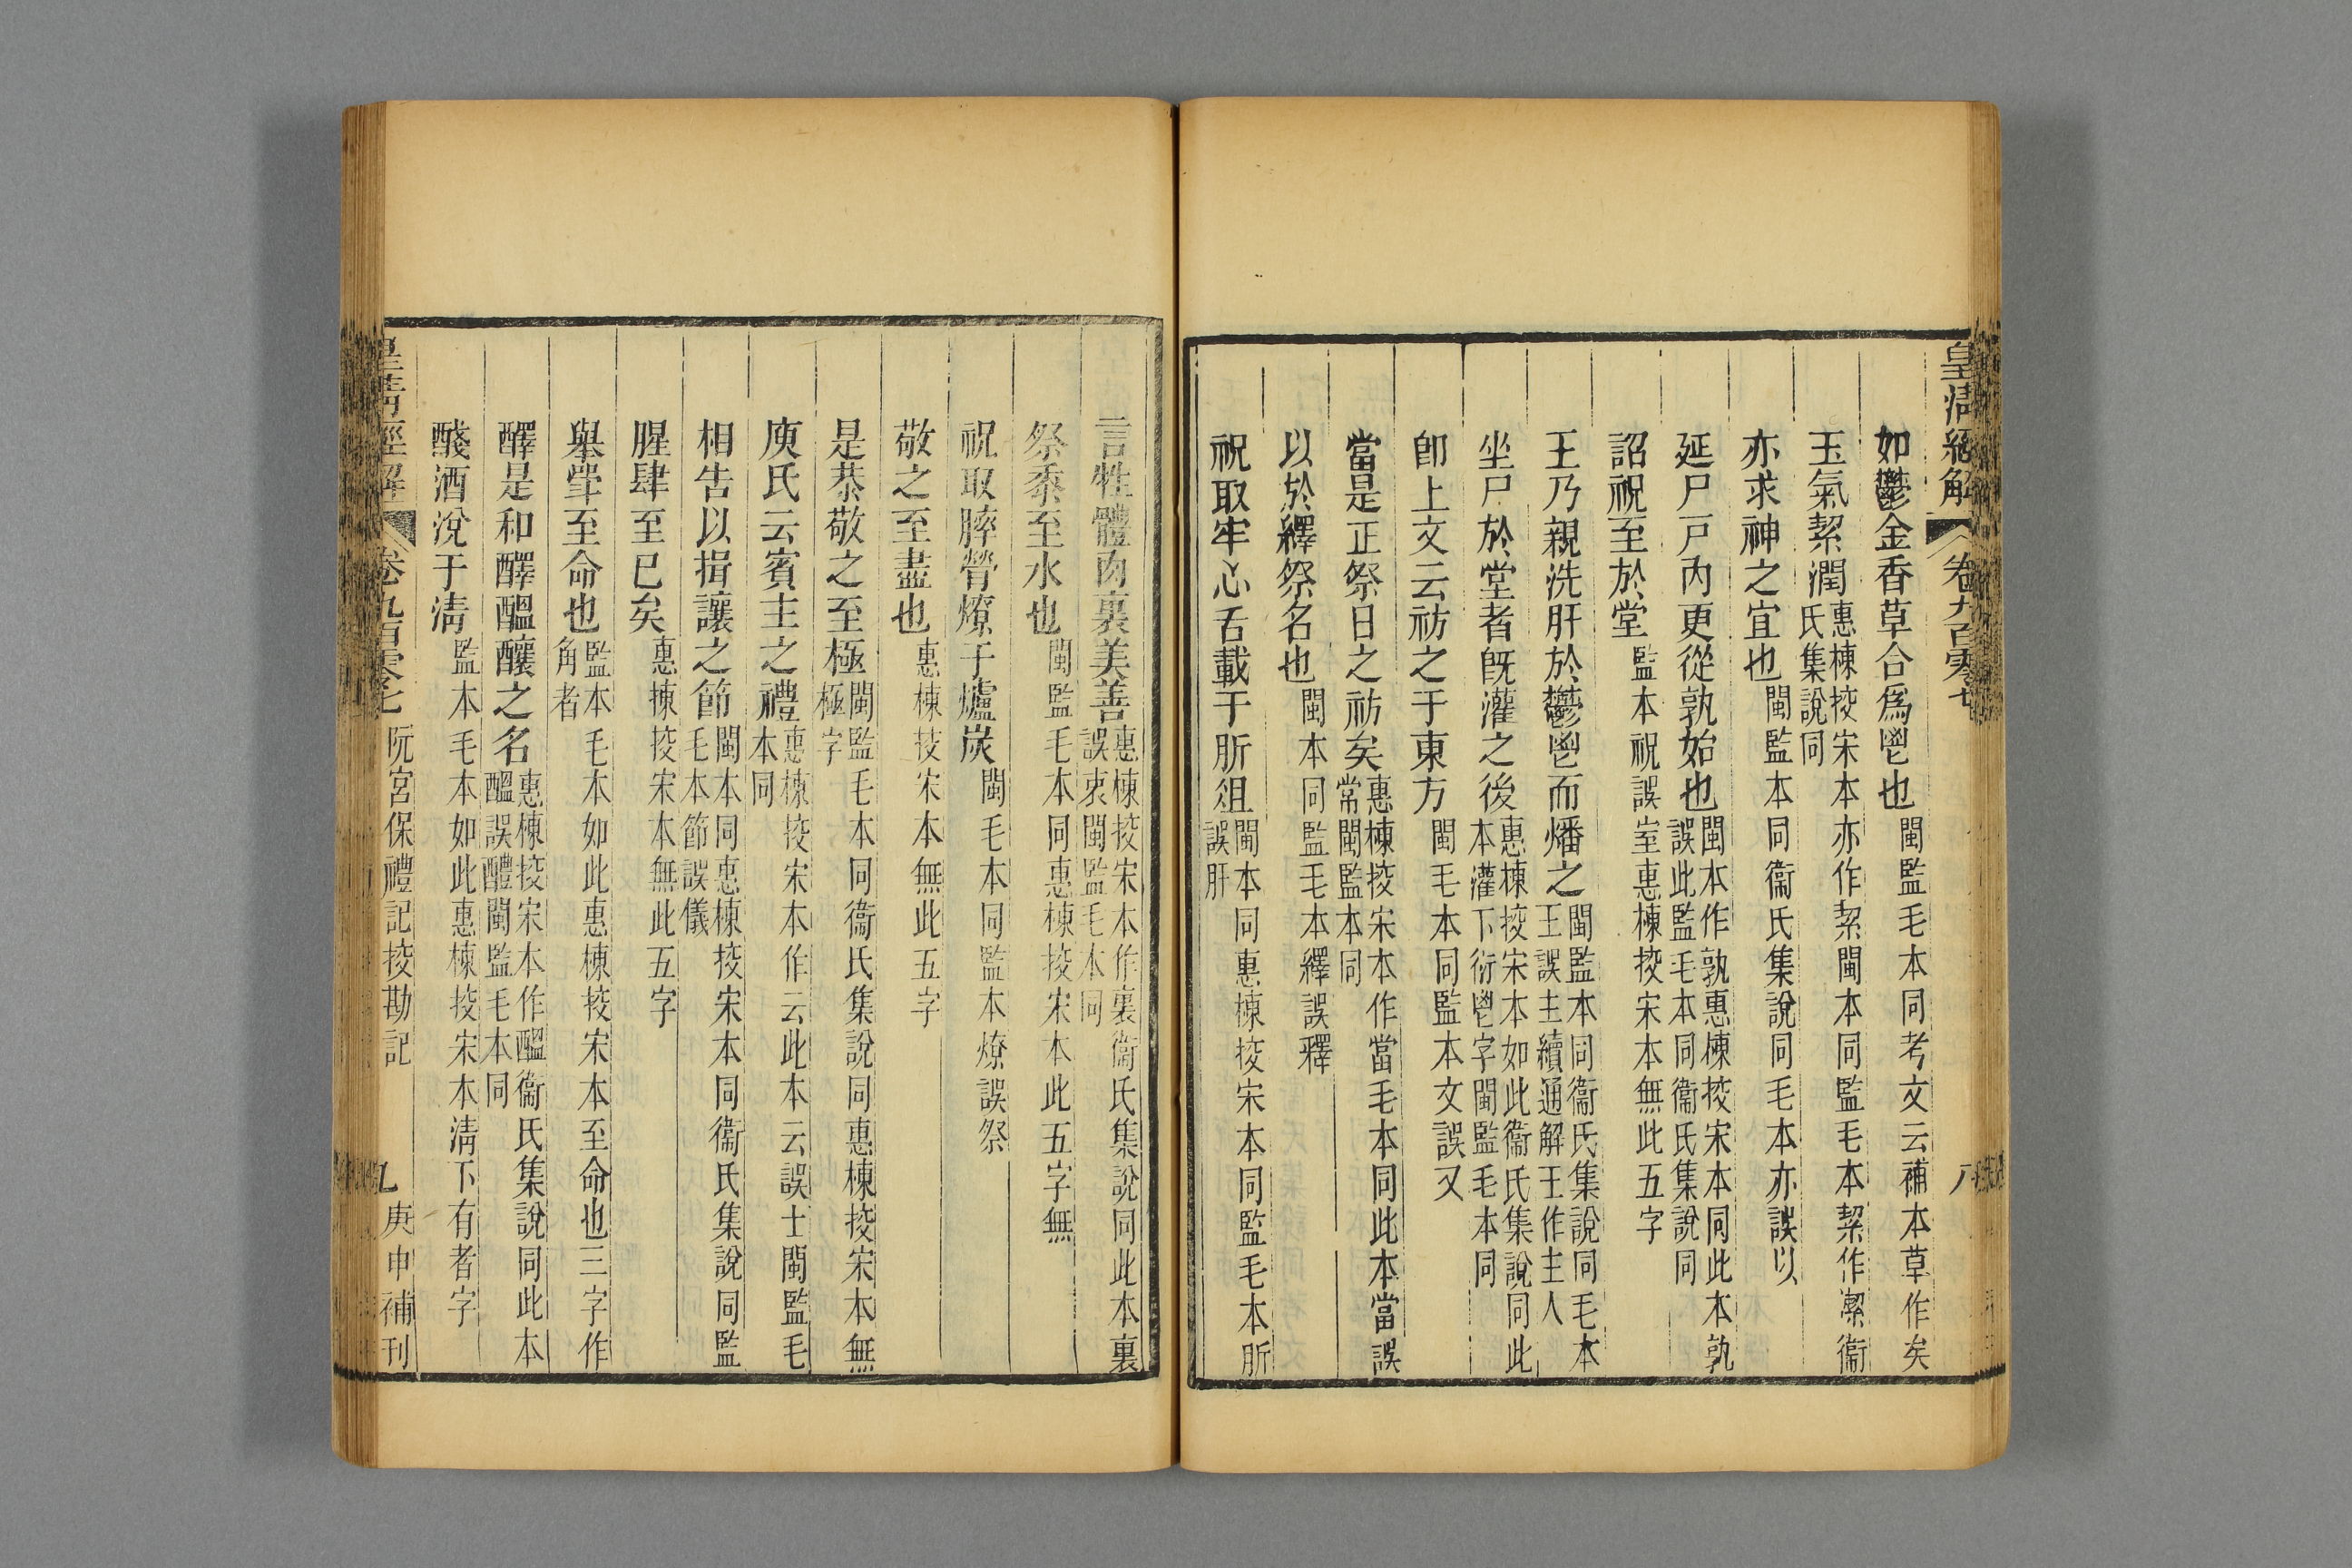 皇清經解 卷九百零七 八
如鬱金香草合爲鬯也 閩監毛本同考文云補本草作矣
玉氣絜潤 惠棟挍宋本亦作絜閩本同監毛本絜作潔衞氏集說同
亦求神之宜也 閩監本同衞氏集說同毛本亦誤以
延尸戸內更從孰始也 閩本作孰惠棟挍宋本同此本孰誤此監毛本同衞氏集說同
詔祝至於堂 監本祝誤室惠棟挍宋本無此五字
王乃親洗肝於鬱鬯而燔之 閩監本同衞氏集說同毛本王誤主續通解王作主人
坐尸於堂者旣灌之後 惠棟挍宋本如此衞氏集說同此本灌下衍鬯字閩監毛本同
卽上文云祊之于東方 閩毛本同監本文誤又
當是正祭日之祊矣 惠棟挍宋本作當毛本同此本當誤常閩監本同
以於繹祭名也 閩本同監毛本繹誤釋
祝取牢心舌載于肵俎 閩本同惠棟挍宋本同監毛本肵誤肝
言牲體肉裏美善 惠棟挍宋本作裏衞氏集說同此本裏誤衷閩監毛本同
祭黍至水也 閩監毛本同惠棟挍宋本此五字無
祝取膟膋燎于爐炭 閩毛本同監本燎誤祭
敬之至盡也 惠棟技宋本無此五字
是恭敬之至極 閩監毛本同衞氏集說同惠棟挍宋本無極字
庾氏云賓主之禮 惠棟挍宋本作云此本云誤士閩監毛本同
相告以揖讓之節 閩本同惠棟挍宋本同衞氏集說同監毛本節誤儀
腥肆至已矣 惠棟挍宋本無此五字
舉斝至命也 監本毛本如此惠棟挍宋本至命也三字作角者
醳是和醳醞釀之名 惠棟挍宋本作醞衞氏集說同此本醞誤醴閩監毛本同
醆酒涗于淸 監本毛本如此惠棟挍宋本淸下有者字
皇清經解 卷九百零七 阮宮保禮記挍勘記 九 庚申補刊